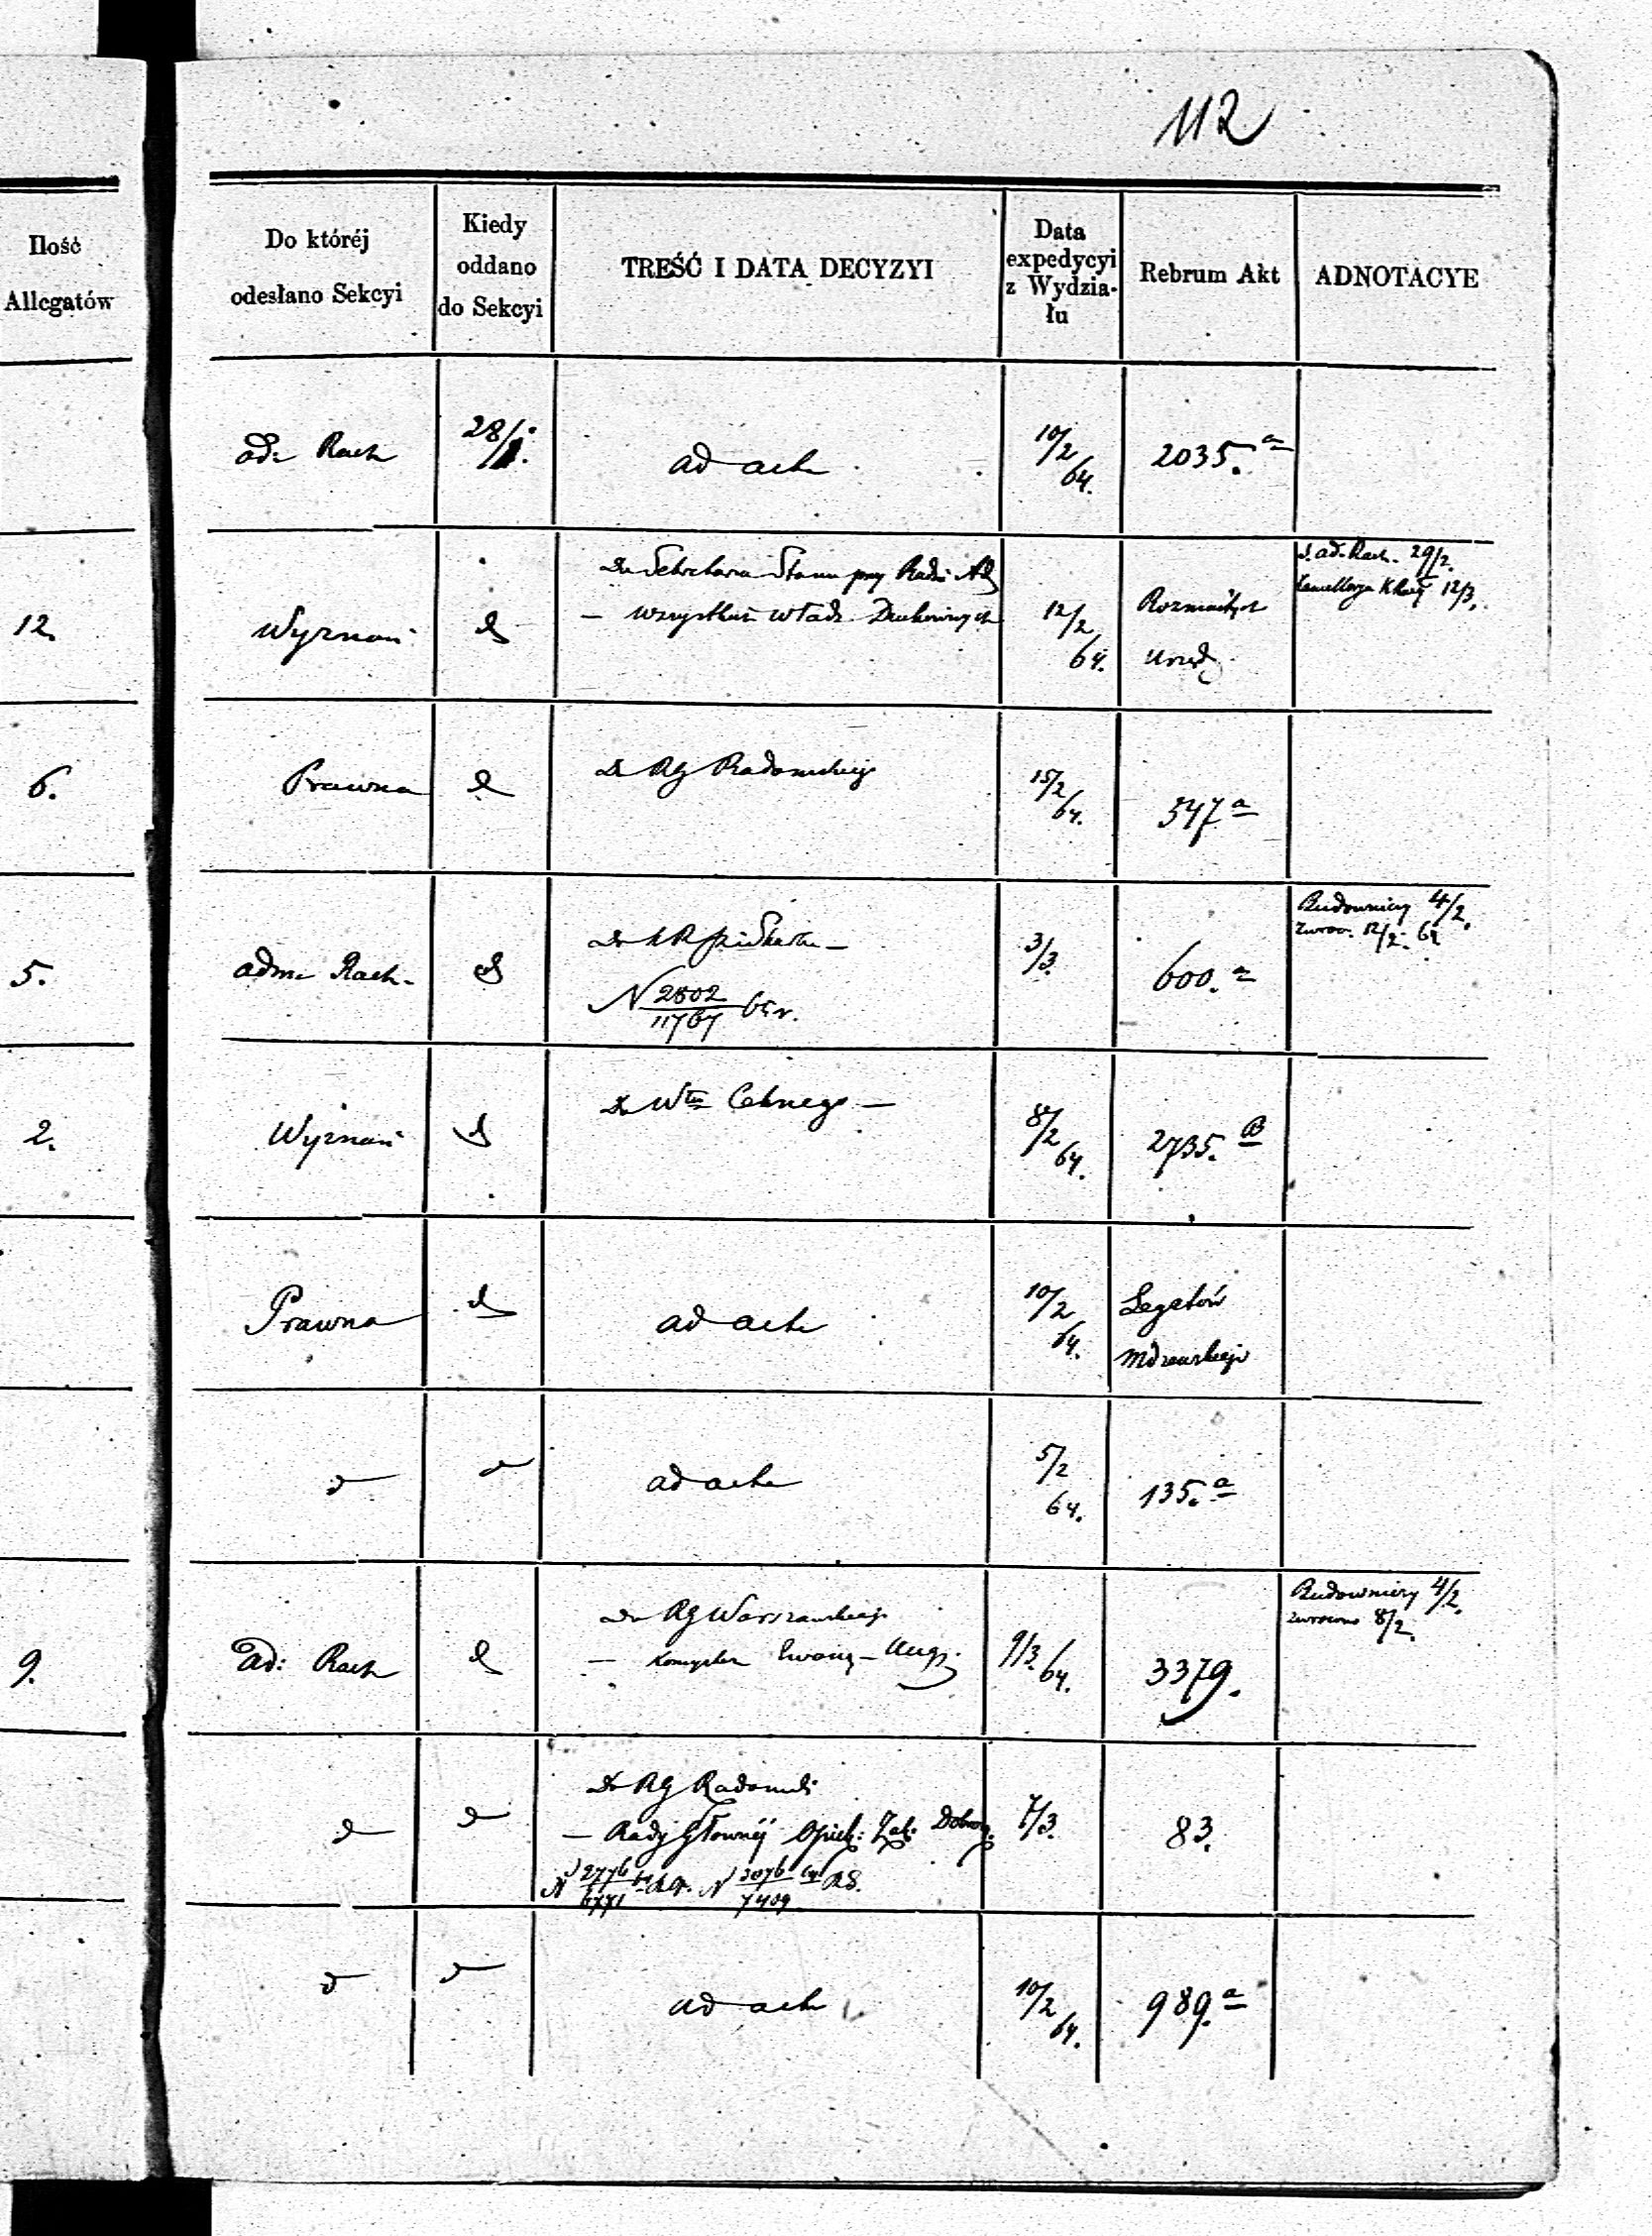 112
Ilość
Allegatów
Do któréj
odesłano Sekcyi
Kiedy
oddano
do Sekcyi
TREŚĆ I DATA DECYZYI
Data
expedycyi
z Wydzia-
łu
Rebrum Akt
ADNOTACYE
ad: Rach
28/1.
ad acta
10/2
64.
2035. a
12.
Wyznań
d
Do Sekretarza Stanu przy Radzie Ad
— wszystkich władz Duchownych
12/2
64.
Rozmaitych
urzęd.
ad. Rach. 29/2.
12/3.
6.
Prawna
d
Do RG Radomskiego
15/2
64.
547 a
5.
adm Rach.
d
Do
N 2802/11767 65 r.
3/3.
600. a
Budowniczy 4/2.
zwróc. 12/2. 64
2.
Wyznań
d
Do Wtu Celnego —
8/2
64.
2735. B
Prawna
d
ad acta
10/2
64.
Legatów
Mdzewskiego
d
d
ad acta
5/2
64.
135. a
9.
Ad: Rach
d
Do RG Warszawskiego
— Konsystorza Ewang — Augs.
9/3. 64.
3379.
Budowniczy 4/2.
zwrócono 8/2.
d
d
Do RG Radomski
— Rady Głównéj Opiek: Zak: Dobrocz.
N 2776/6771 N 3076/7409
7/3.
83.
d
d
ad acta
10/2
64.
989. a